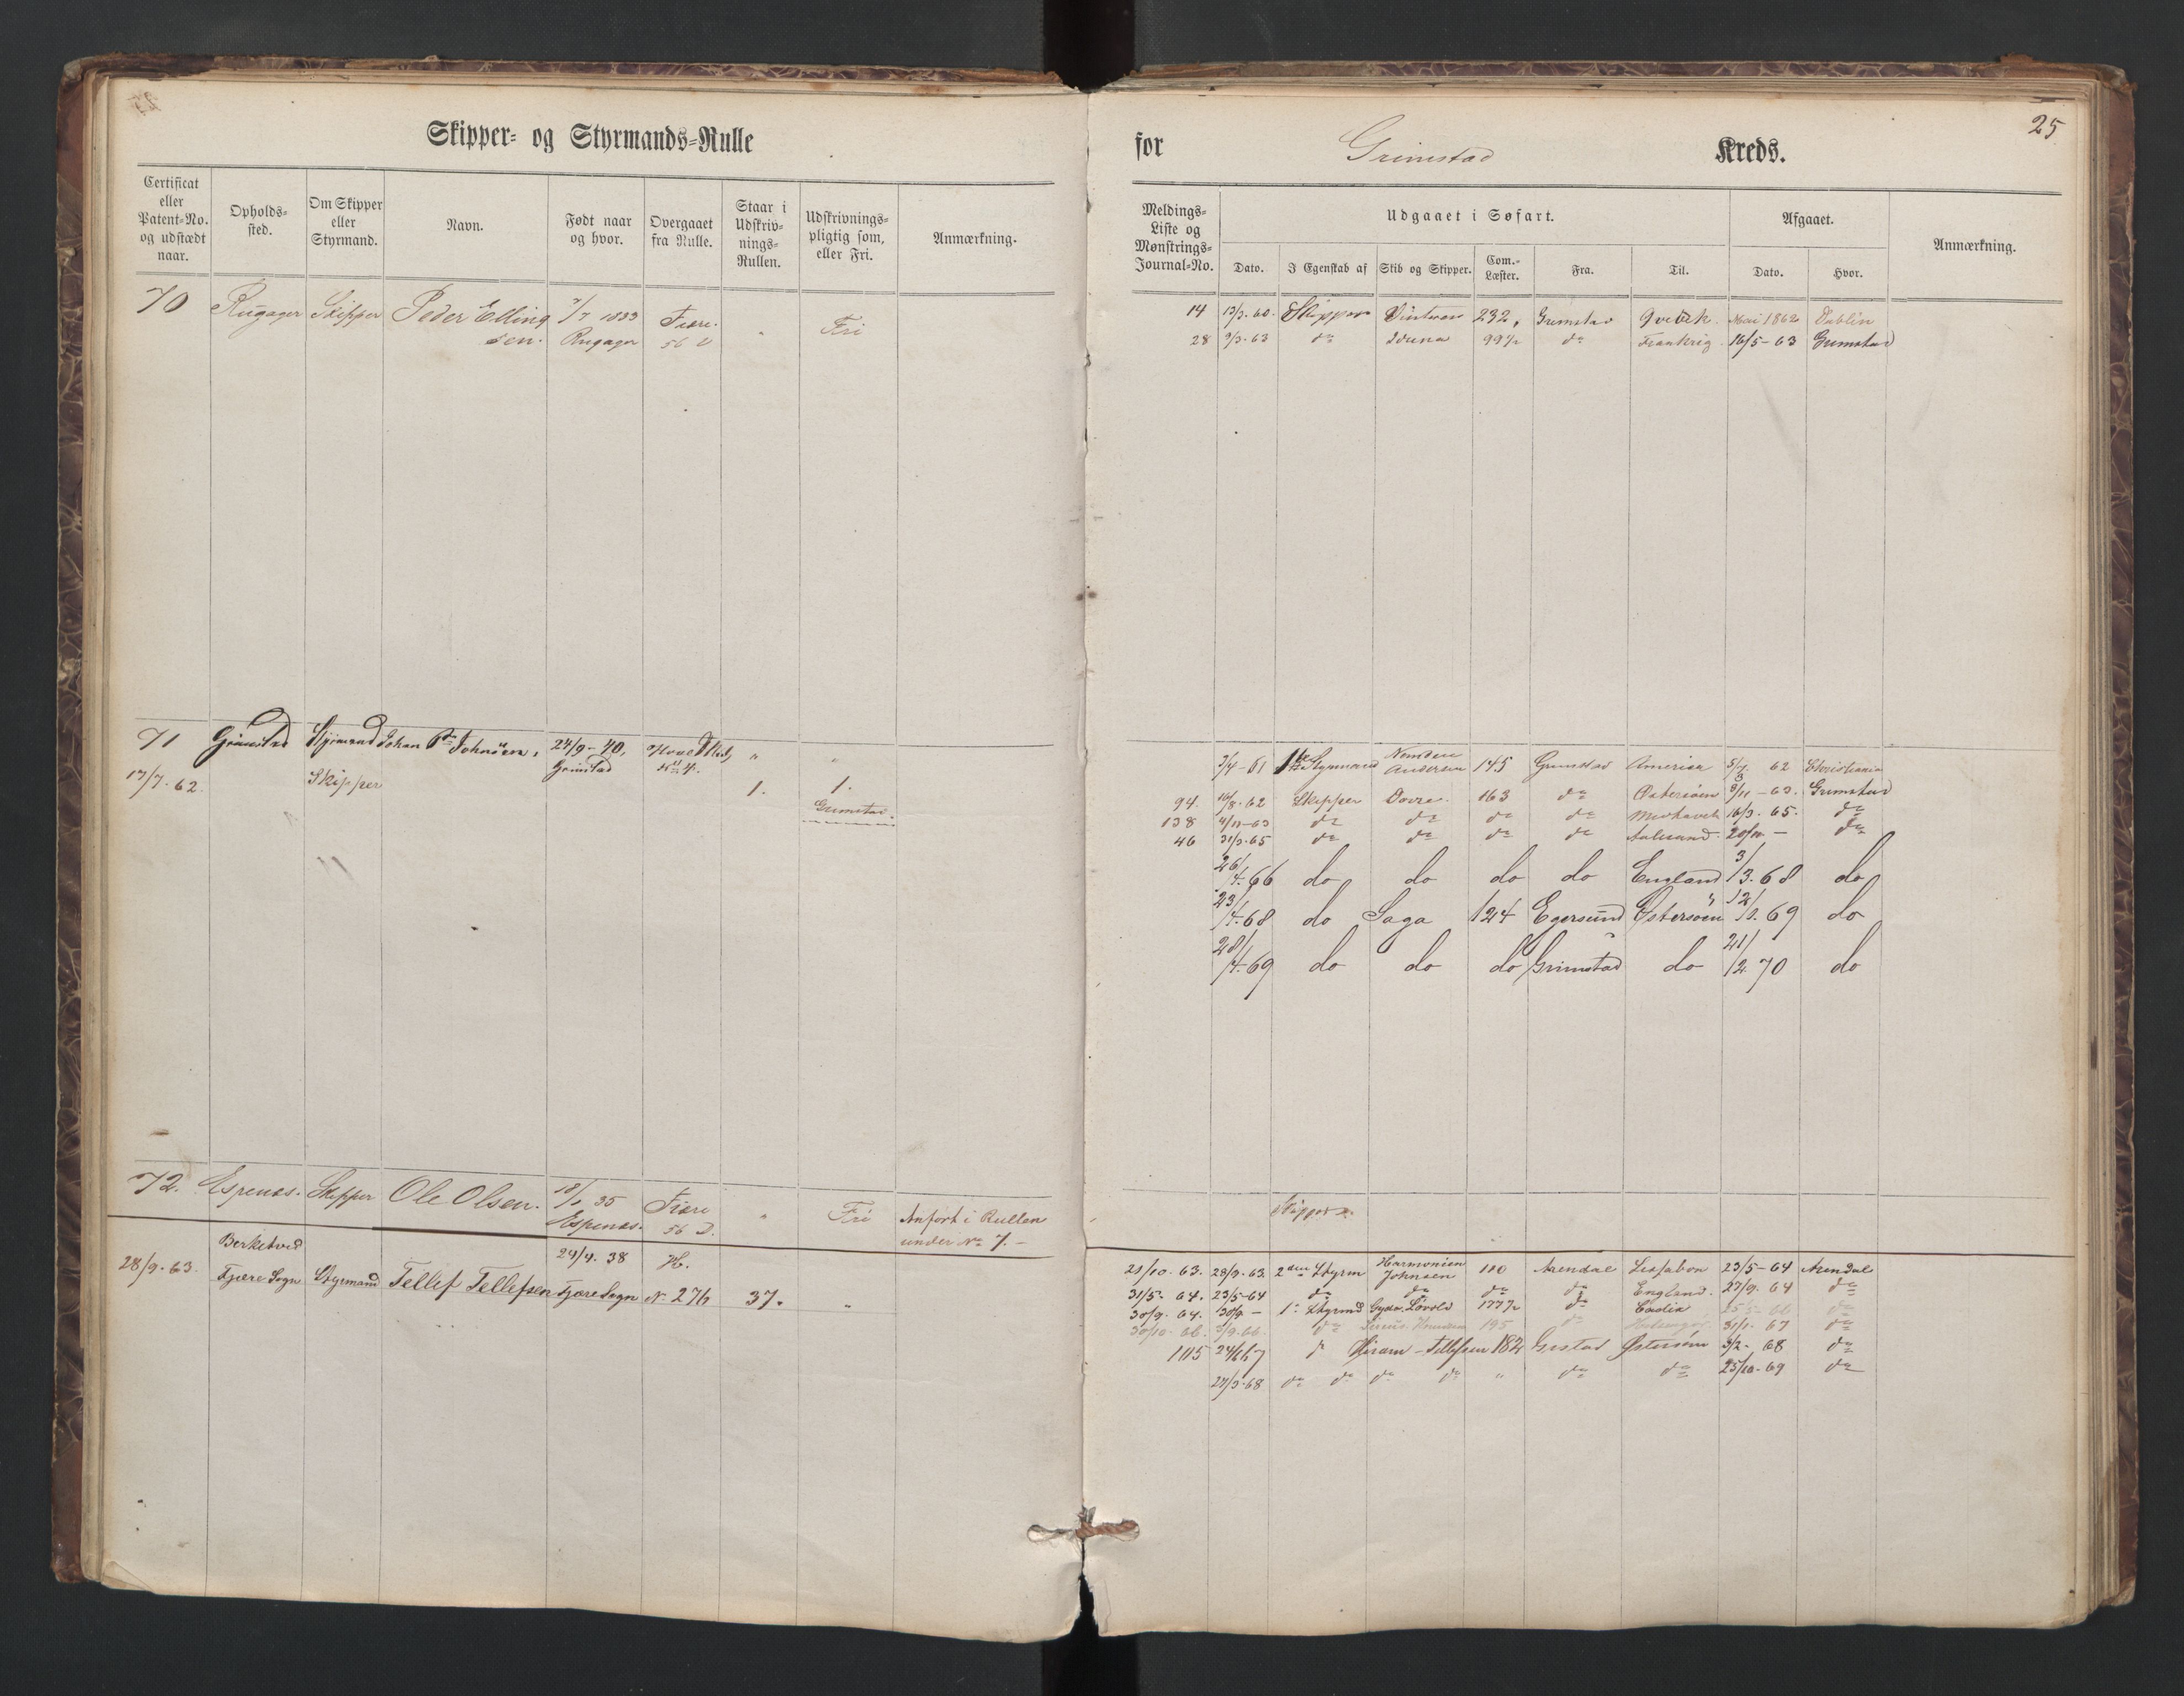 Skipper- og Styrmands-Rulle
for Grimstad Kreds.
25
Certificat eller Patent-No. og udstædt naar.
Opholds-sted.
Om Skipper eller Styrmand.
Navn.
Født naar og hvor.
Overgaaet fra Rulle.
Staar i Udskriv-nings-Rullen.
Udskrivnings-pligtig som, eller Fri.
Anmærkning.
Meldings-Liste og Mønstrings-Journal-No.
Udgaaet i Søfart.
Afgaaet.
Anmærkning.
Dato. I Egenskab af Skib og Skipper. Com.-Læster. Fra. Til. Dato. Hvor.
70 Rugager Skipper Peder Elling 7/7 1833 Fiære " Fri
sen. Rugager 56
14 13/3. 60. Skipper 232, Grimstad Qvebek. Mai 1862 Dublin
28 9/3. 63 do Iduna 99½ do Frankrig 16/5 - 63 Grimstad
71 Grimstad Styrmand Johan Johnsen, 24/9 - 40, " "
Grimstad No 4.
17/7. 62. Skipper 1. 1.
Grimstad.
7/4 - 61 1ste Styrmand Andersen 145 Grimstad America 62 Christiania
94. 16/8. 62 Skipper Dovre. 163 do Østersøen 3/11 - 63. Grimstad
138 4/11 - 63 do do do do 16/3. 65. do
46 31/3. 65 do do do do do
26/4. 66 do do do do England 3/3. 68 do
23/4. 68 do Saga 124 Egersund Østersøen 12/1. 69 do
28/4. 69 do do do Grimstad do 21/2. 70 do
72. Espenæs. Skipper Ole Olsen. 18/1 35 Fiære " Fri Anført i Rullen
Espenæs. 56 D. under No 7. -
Skipper
Berketved 29/4. 38 H.
28/9. 63. Fjære Sogn Styrmand Tellef Tellefsen Fjære Sogn No 276 37. "
21/10. 63. 28/9. 63. 2den Styrm Harmonien Johnsen 110 Arendal Lissabon 23/5 - 64 Arendal
31/5. 64. 23/5 - 64 do do do do England. 27/9. 64 do
30/9. 64. 30/9 - 1. Styrmd Gyda, Løvold 177½ do do
30/10. 66. 3/9. 66. do 195 do 31/1. 67 do
1105 24/6 67 Hiram - Tellefsen 182 Grstad Østersøen 3/2 - 68 do
27/3. 68 do do do do " do do 25/10. 69 do